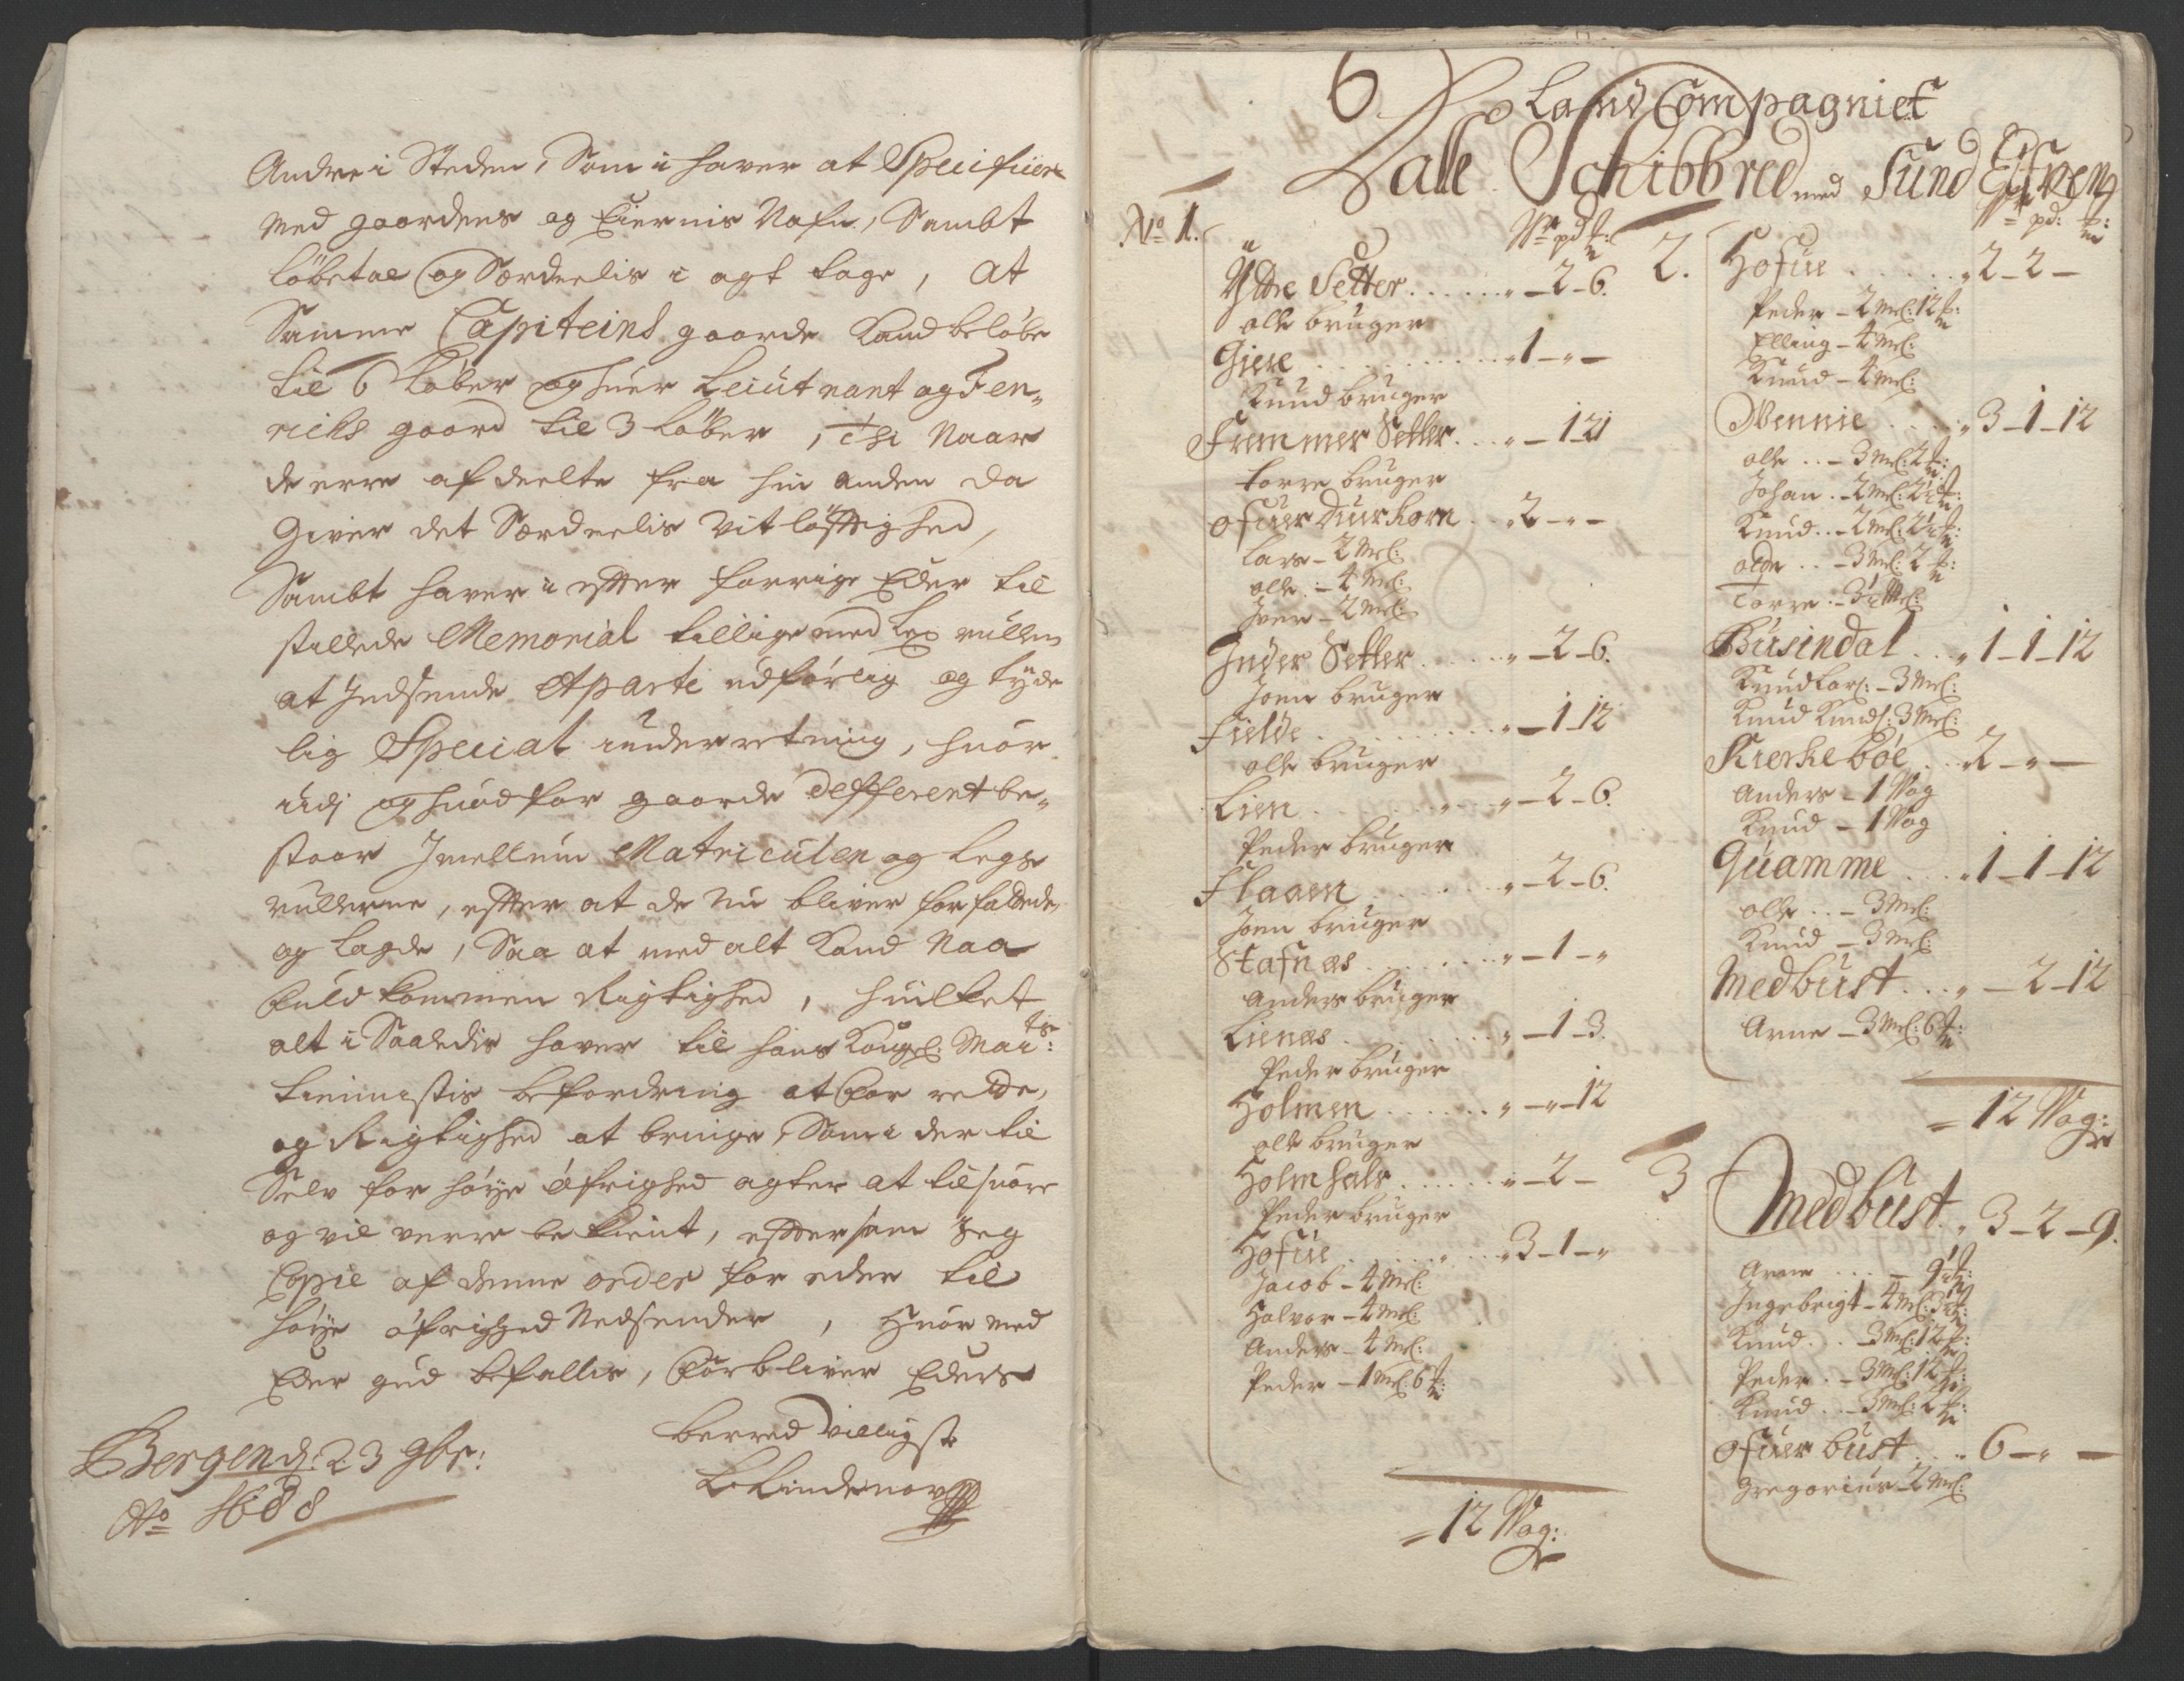 Andre i Steden, Som i hafver at Specificere
med gaardens og Eiernis Nafn, Sambt
løbetal og Særdeelis i agt tage, At
Samme Capiteins gaarde Kand beløbe
til 6 Løber og huer Leiutnant og Fen-
richs gaard til 3 Løber, thi Naar
de erre afdeelte fra hin anden da
Giver det Særdeelis Vitløfftighed,
Sambt haver i effter forrige Eder til
stillede Memorial tillige med Leg rullen
at Indsende Aparte udførlig og tyde
lig Special underretning, huor
udj og huad for gaarde defferent be-
staar Imellum Matriculen og Legs
rullerne, effter at de Nu bliver forfattede,
og Lagde, Saa at med alt Kand Naa
fuldkommen Rigtighed, huilket
alt i Saaledis haver til hans Kongel: Maits:
tiennistis befordring at forrette,
og Rigtighed at bringe, Som i der til
Selv for høye øfrighed agter at tilsuare
og vil verre bekient, efftersom Jeg
Copie af denne order for eder til
høye øfrighed Nedsender, Huor med
Eder gud befallis, forbliver Eders
berredvilligste
Bergen d: 23 9br:
Ao 1688
L Lindenow
6 Land Compagniet
Dalle Schibbred med Sund Eifren
No 1.
W pd :
Yttre Setter . . . . . " - 2 - 6.
olle bruger
Giere . . . . . " 1 - " -
Knud bruger
Fremmer Setter . . . " - 1 21
torre bruger
ofuer Duurkorn . . " 2 - " -
Lars - 2 Ml:
olle . - 4 Ml:
Iver - 2 Ml:
Inder Setter . . . . . " - 2 - 6.
Joen bruger
Fielde . . . . . " - 1 12
olle bruger
Lien . . . . . " - 2 - 6.
Peder bruger
Flaaen . . . . . " - 2 - 6.
Joen bruger
Stafnæs . . . . . " - 1 - "
Anders bruger
Lienæs . . . . . " - 1 - 3.
Peder bruger
Holmen . . . . . " - " - 12
olle bruger
Holmhals . . . . . " - 2 -
Peder bruger
Hofue . . . . . " 3 - 1 - "
Jacob - 4 Ml:
Halvor - 4 Ml:
Anders - 4 Ml:
Peder - 1 Ml: 6
= 12 Wog:
2.
W pd:
Hofue . . . . . " 2 - 2 -
Peder - 2 Ml: 12
Elling - 4 Ml:
Knud - 4 Ml:
Nennie . . . . " 3 - 1 - 12
olle . . - 3 Ml: 2
Johan . - 2 Ml: 21
Knud . . - 2 Ml: 21
olle . . - 3 Ml: 2
Torre . - 3 Ml:
Busindal . . . " 1 - 1 - 12
Knud Lars: - 3 Ml:
Knud Knuds: 3 Ml:
Kierkebøe . . . 2 - " -
Anders - 1 Wog
Knud - 1 Wog
Quamme . . . " 1 - 1 - 12
olle . . - 3 Ml:
Knud - 3 Ml:
Medbust . . . " - 2 - 12
Arne - 3 Ml: 6
= 12 Wog:
3
Medbust . " 3 - 2 - 9.
Arne . . . - 9
Ingebrigt - 4 Ml: 3
Knud . . - 3 Ml: 12
Peder . - 3 Ml: 12
Knud . . - 3 Ml: 2
ofuer bust . . . 6 - " -
Gregorius - 2 Ml: